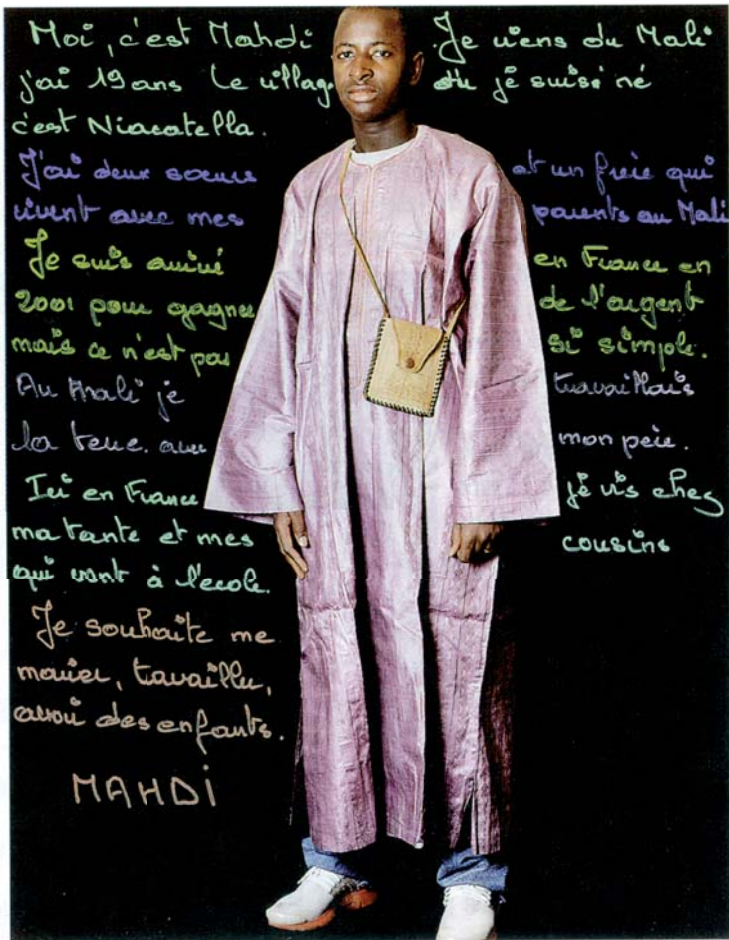 Moi, c'est Mahdi Je viens du Mali
j'ai 19 ans Le village où je suis né
c'est Niacatella.
J'ai deux soeurs et un frère qui
vivent avec mes parents au Mali
Je suis arrivé en France en
2001 pour gagner de l'argent
mais ce n'est pas si simple.
Au Mali je travaillais
la terre. avec mon père.
Ici en France je vis chez
ma tante et mes cousins
qui vont à l'école.
Je souhaite me
marier, tavailler,
avoir des enfants.
MAHDI